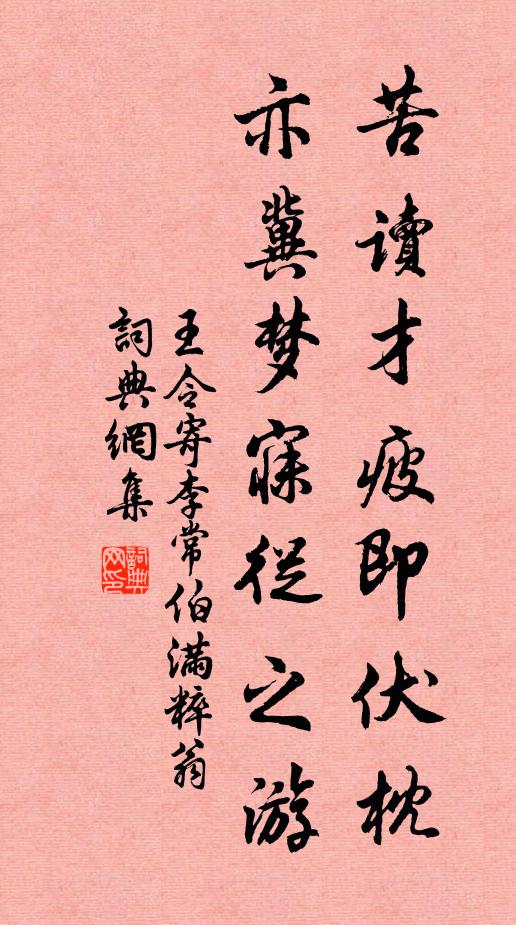 苦讀才疲即伏枕
亦冀梦寐從之游
王令寄李常伯满粹翁
詞典網集
詞典网印